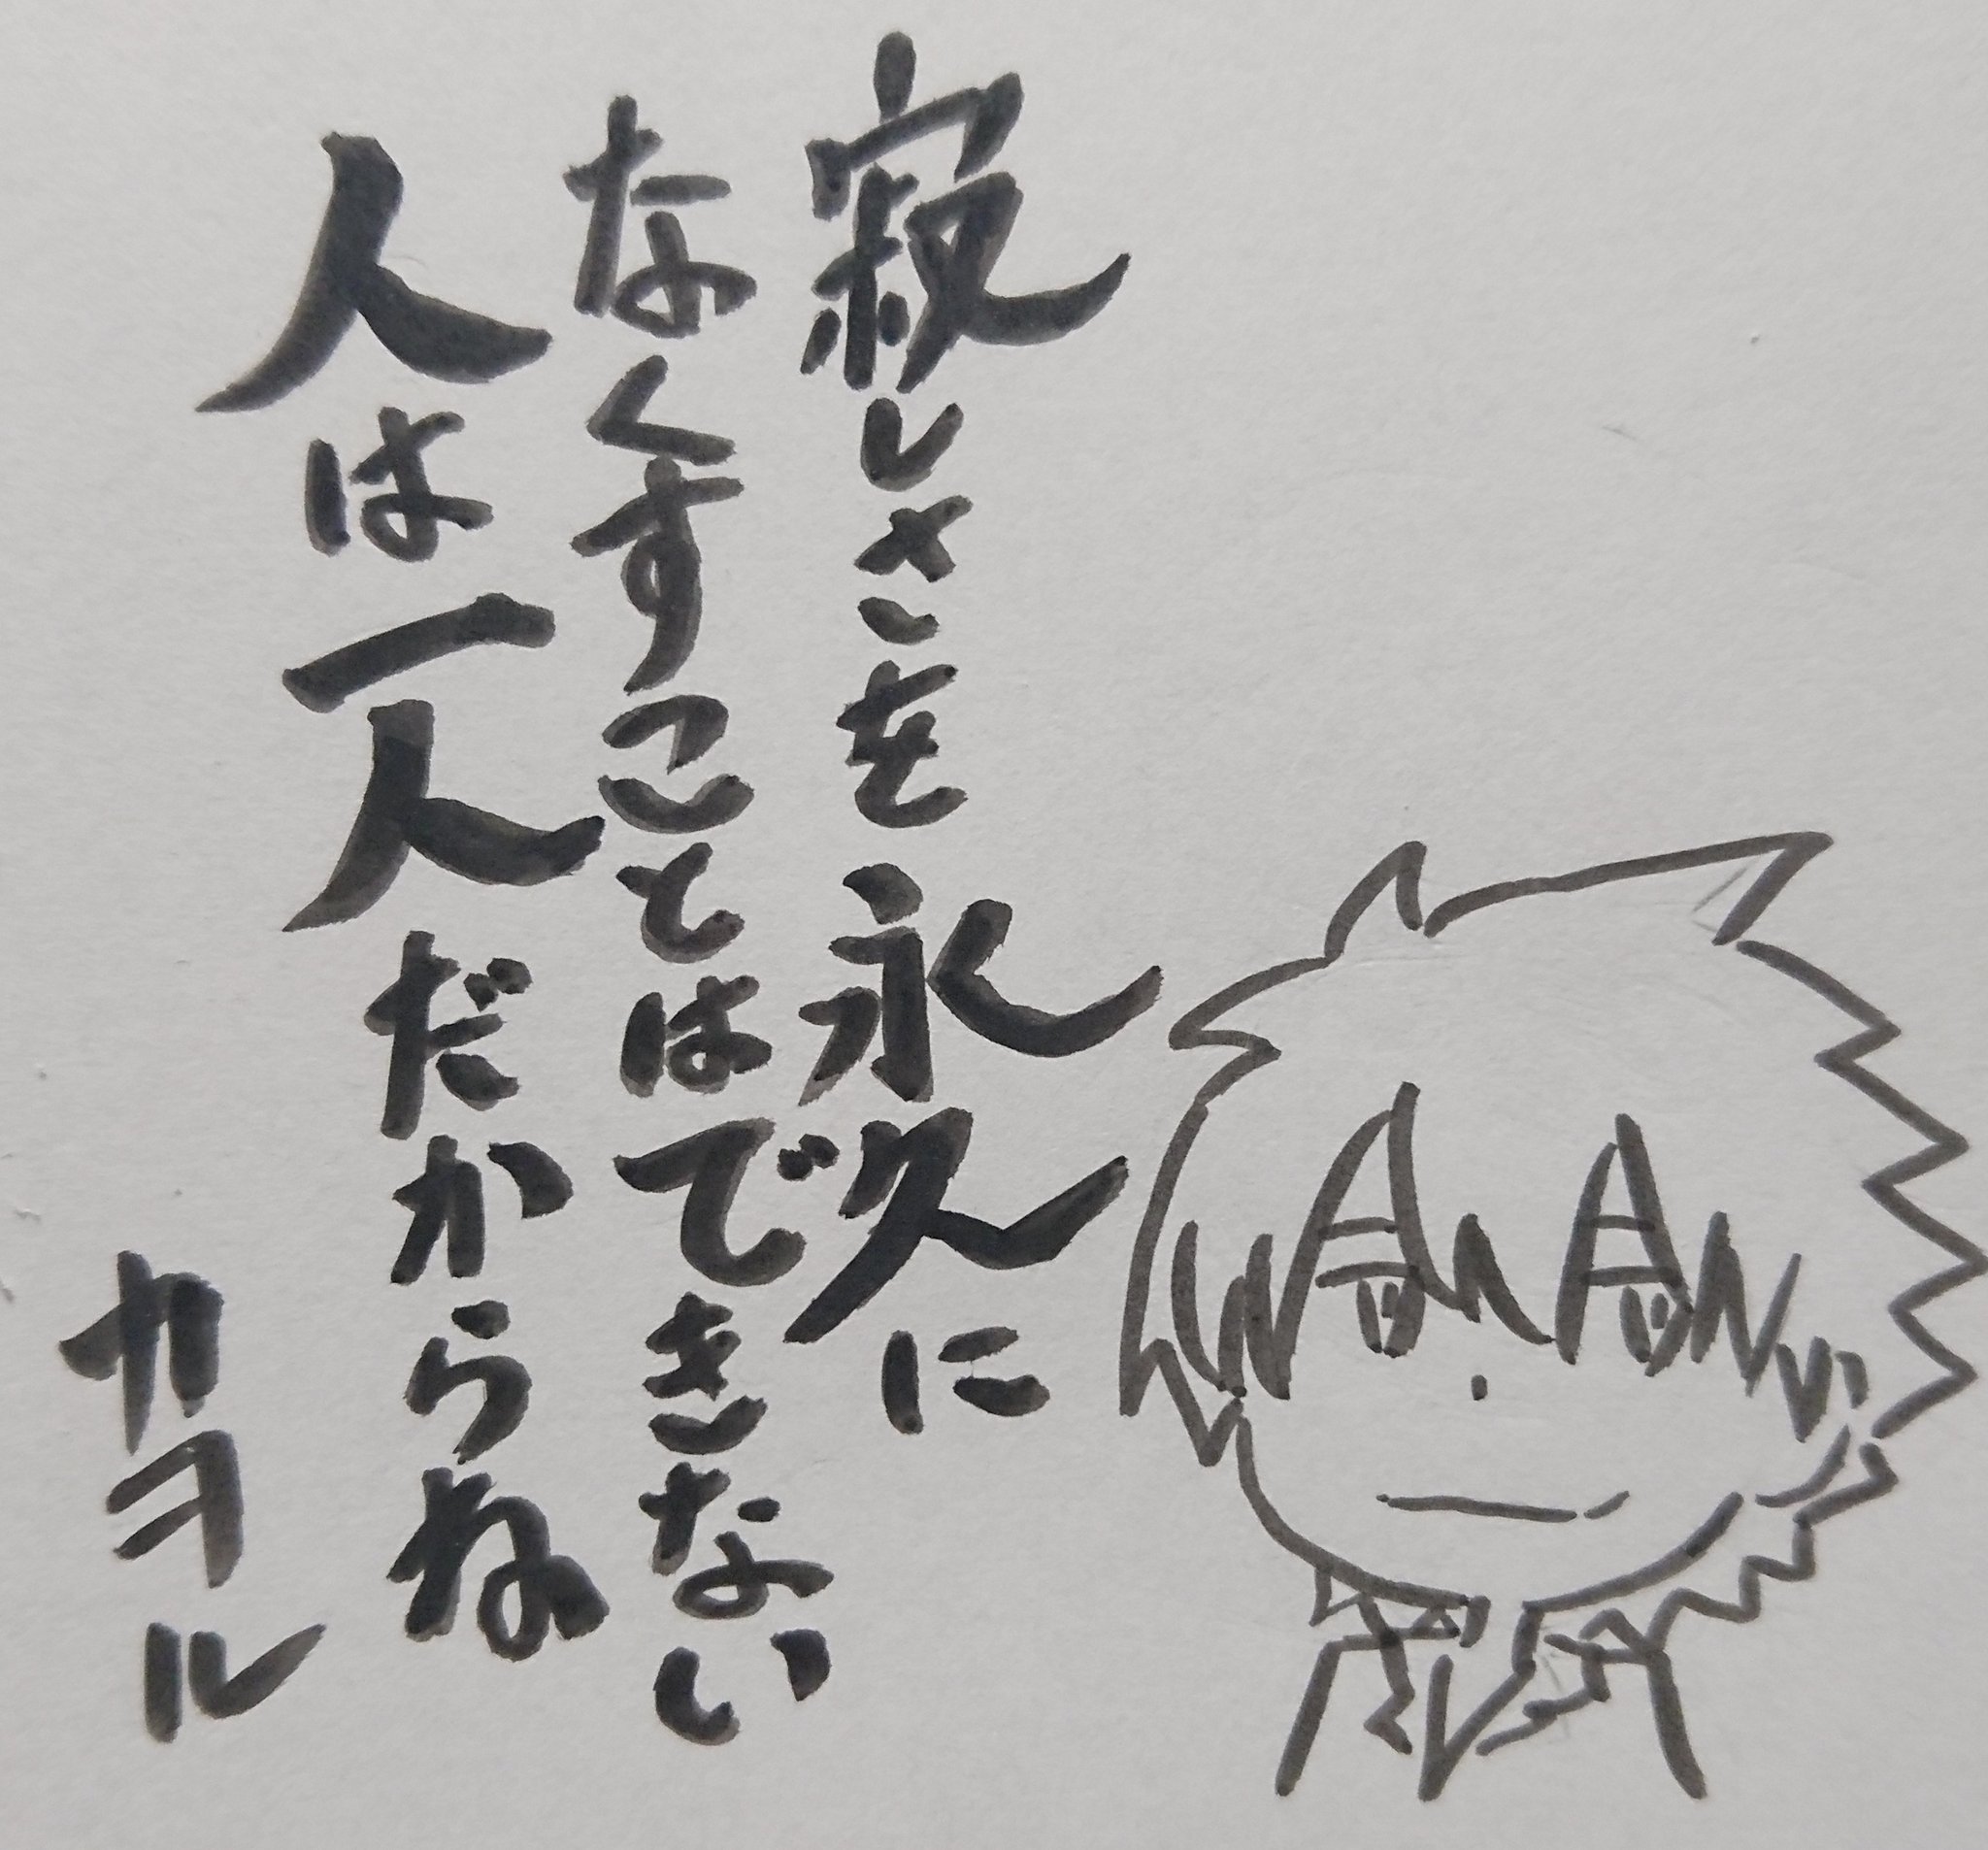 寂しさを永久に
なくすことはできない
人は一人だからね
カヲル